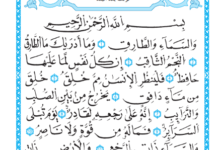 بِسْمِ اللَّهِ الرَّحْمَٰنِ الرَّحِيمِ
وَالسَّمَاءِ وَالطَّارِقِ وَمَا أَدْرَاكَ مَا الطَّارِقُ
النَّجْمُ الثَّاقِبُ إِن كُلُّ نَفْسٍ لَّمَّا عَلَيْهَا
حَافِظٌ فَلْيَنظُرِ الْإِنسَانُ مِمَّ خُلِقَ خُلِقَ
مِن مَّاءٍ دَافِقٍ يَخْرُجُ مِن بَيْنِ الصُّلْبِ
وَالتَّرَائِبِ إِنَّهُ عَلَىٰ رَجْعِهِ لَقَادِرٌ يَوْمَ تُبْلَى
السَّرَائِرُ فَمَا لَهُ مِن قُوَّةٍ وَلَا نَاصِرٍ